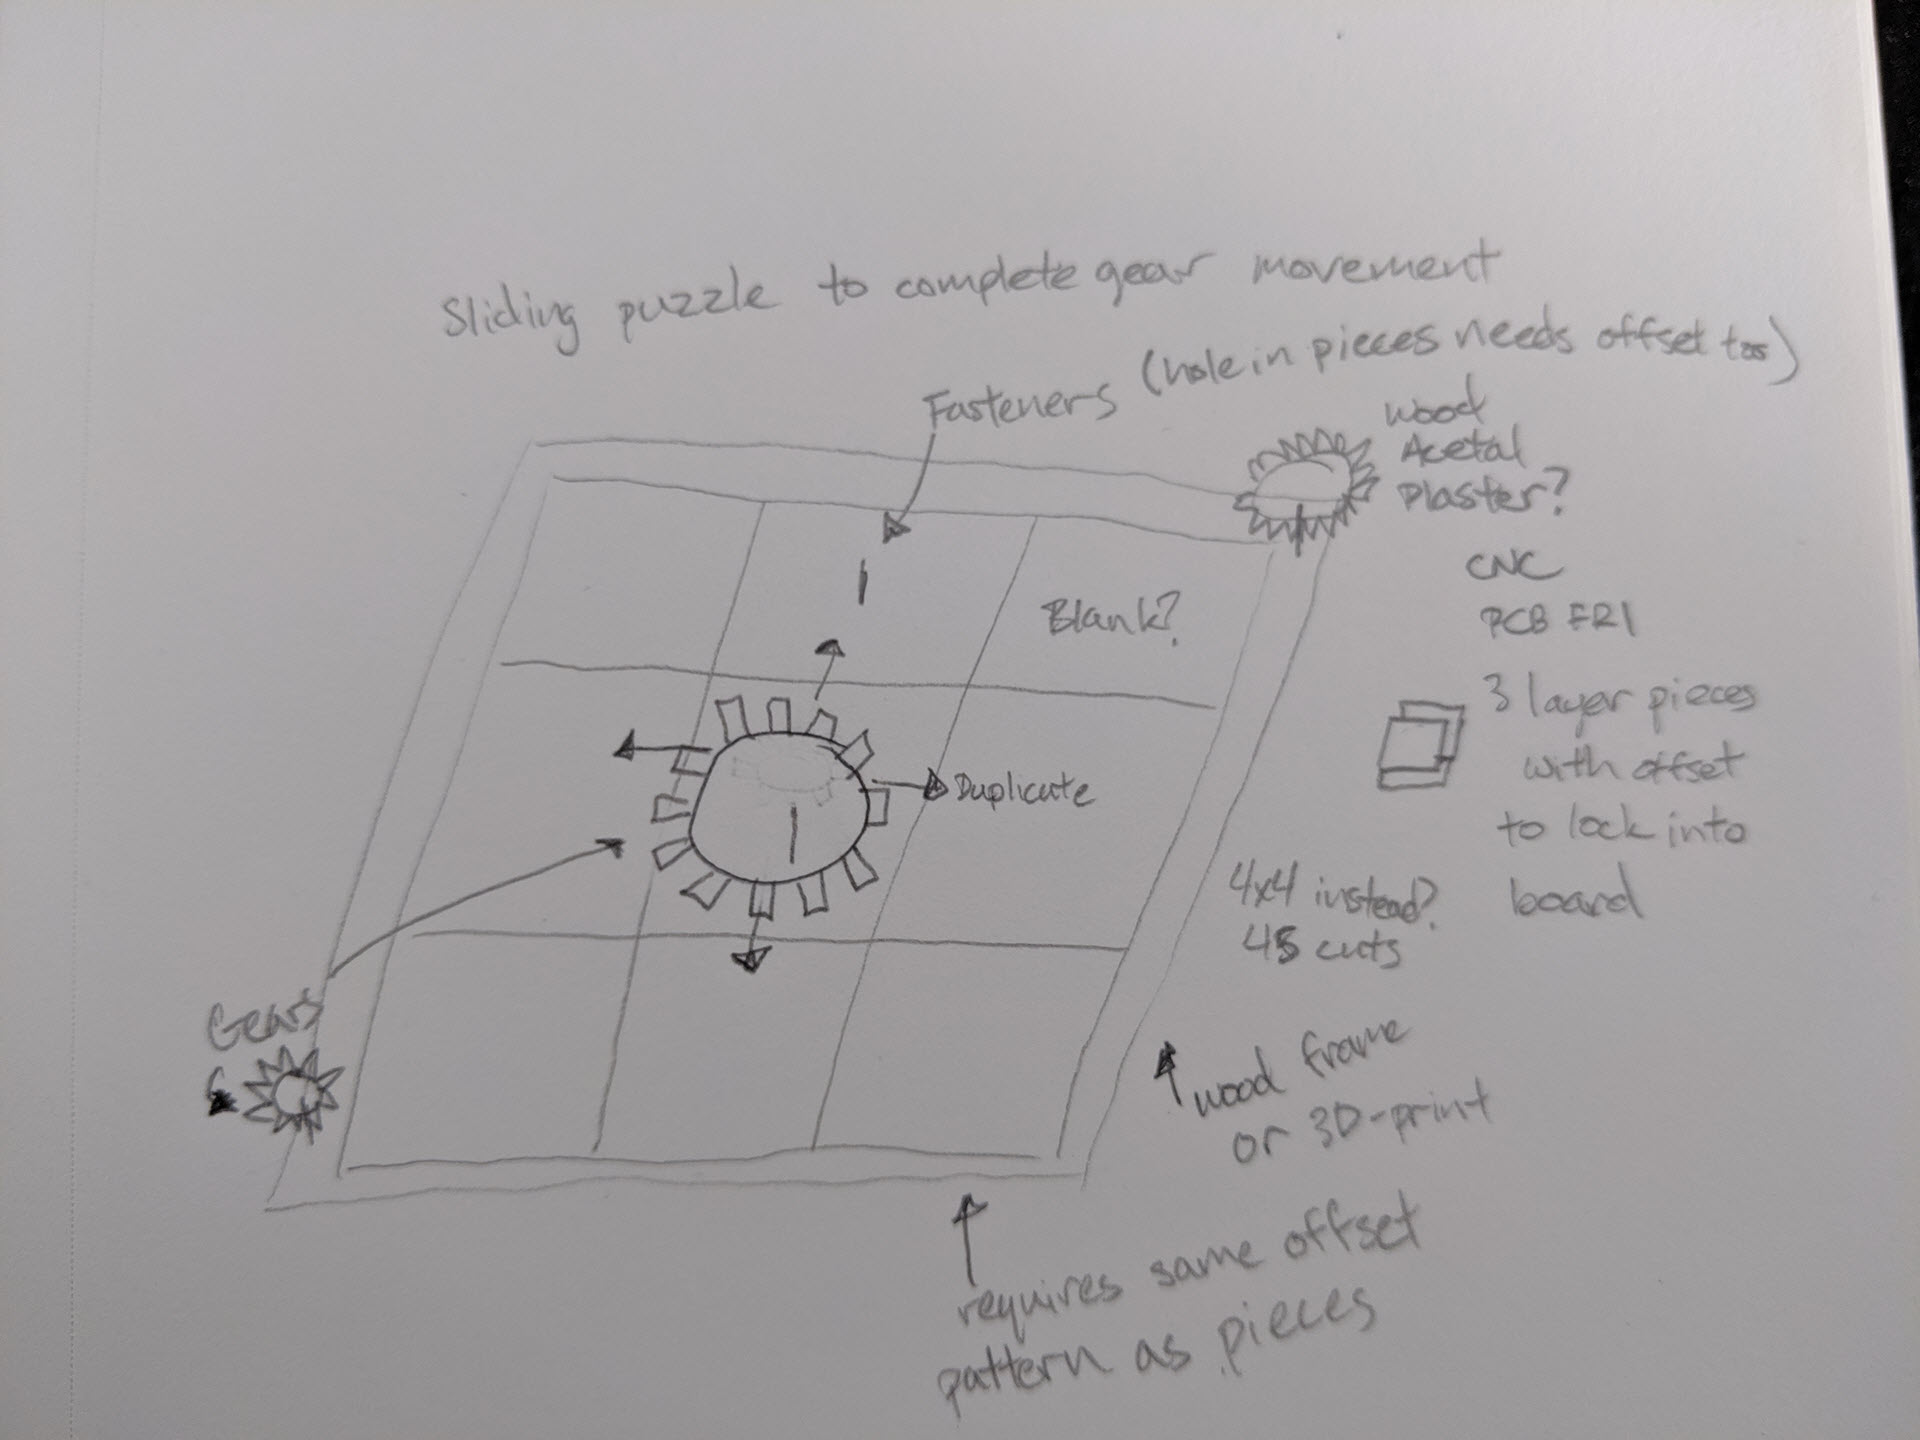 Sliding puzzle to complete gear movement
Fasteners (hole in pieces needs offset too)
wood
Acetal
Plaster?
CNC
PCB FR1
Blank?
3 layer pieces
with offset
to lock into
board
Duplicate
4x4 instead?
45 cuts
Gears
wood frame
or 3D-print
requires same offset
pattern as pieces